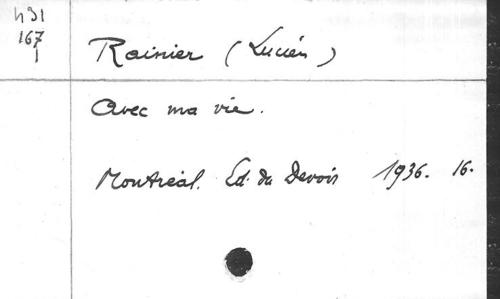 431
167
1
Rainier (Lucien)
Avec ma vie.
Montréal. Ed. du Devoir 1936. 16.